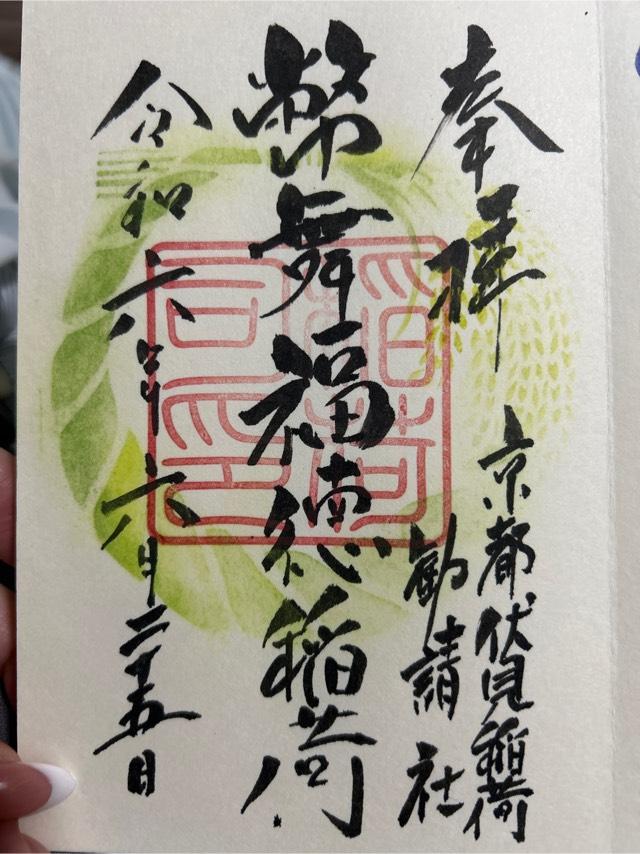 奉拝
京都伏見稲荷
勧請社
幣舞福徳稲荷
令和六年六月二十五日
稲荷
宮印